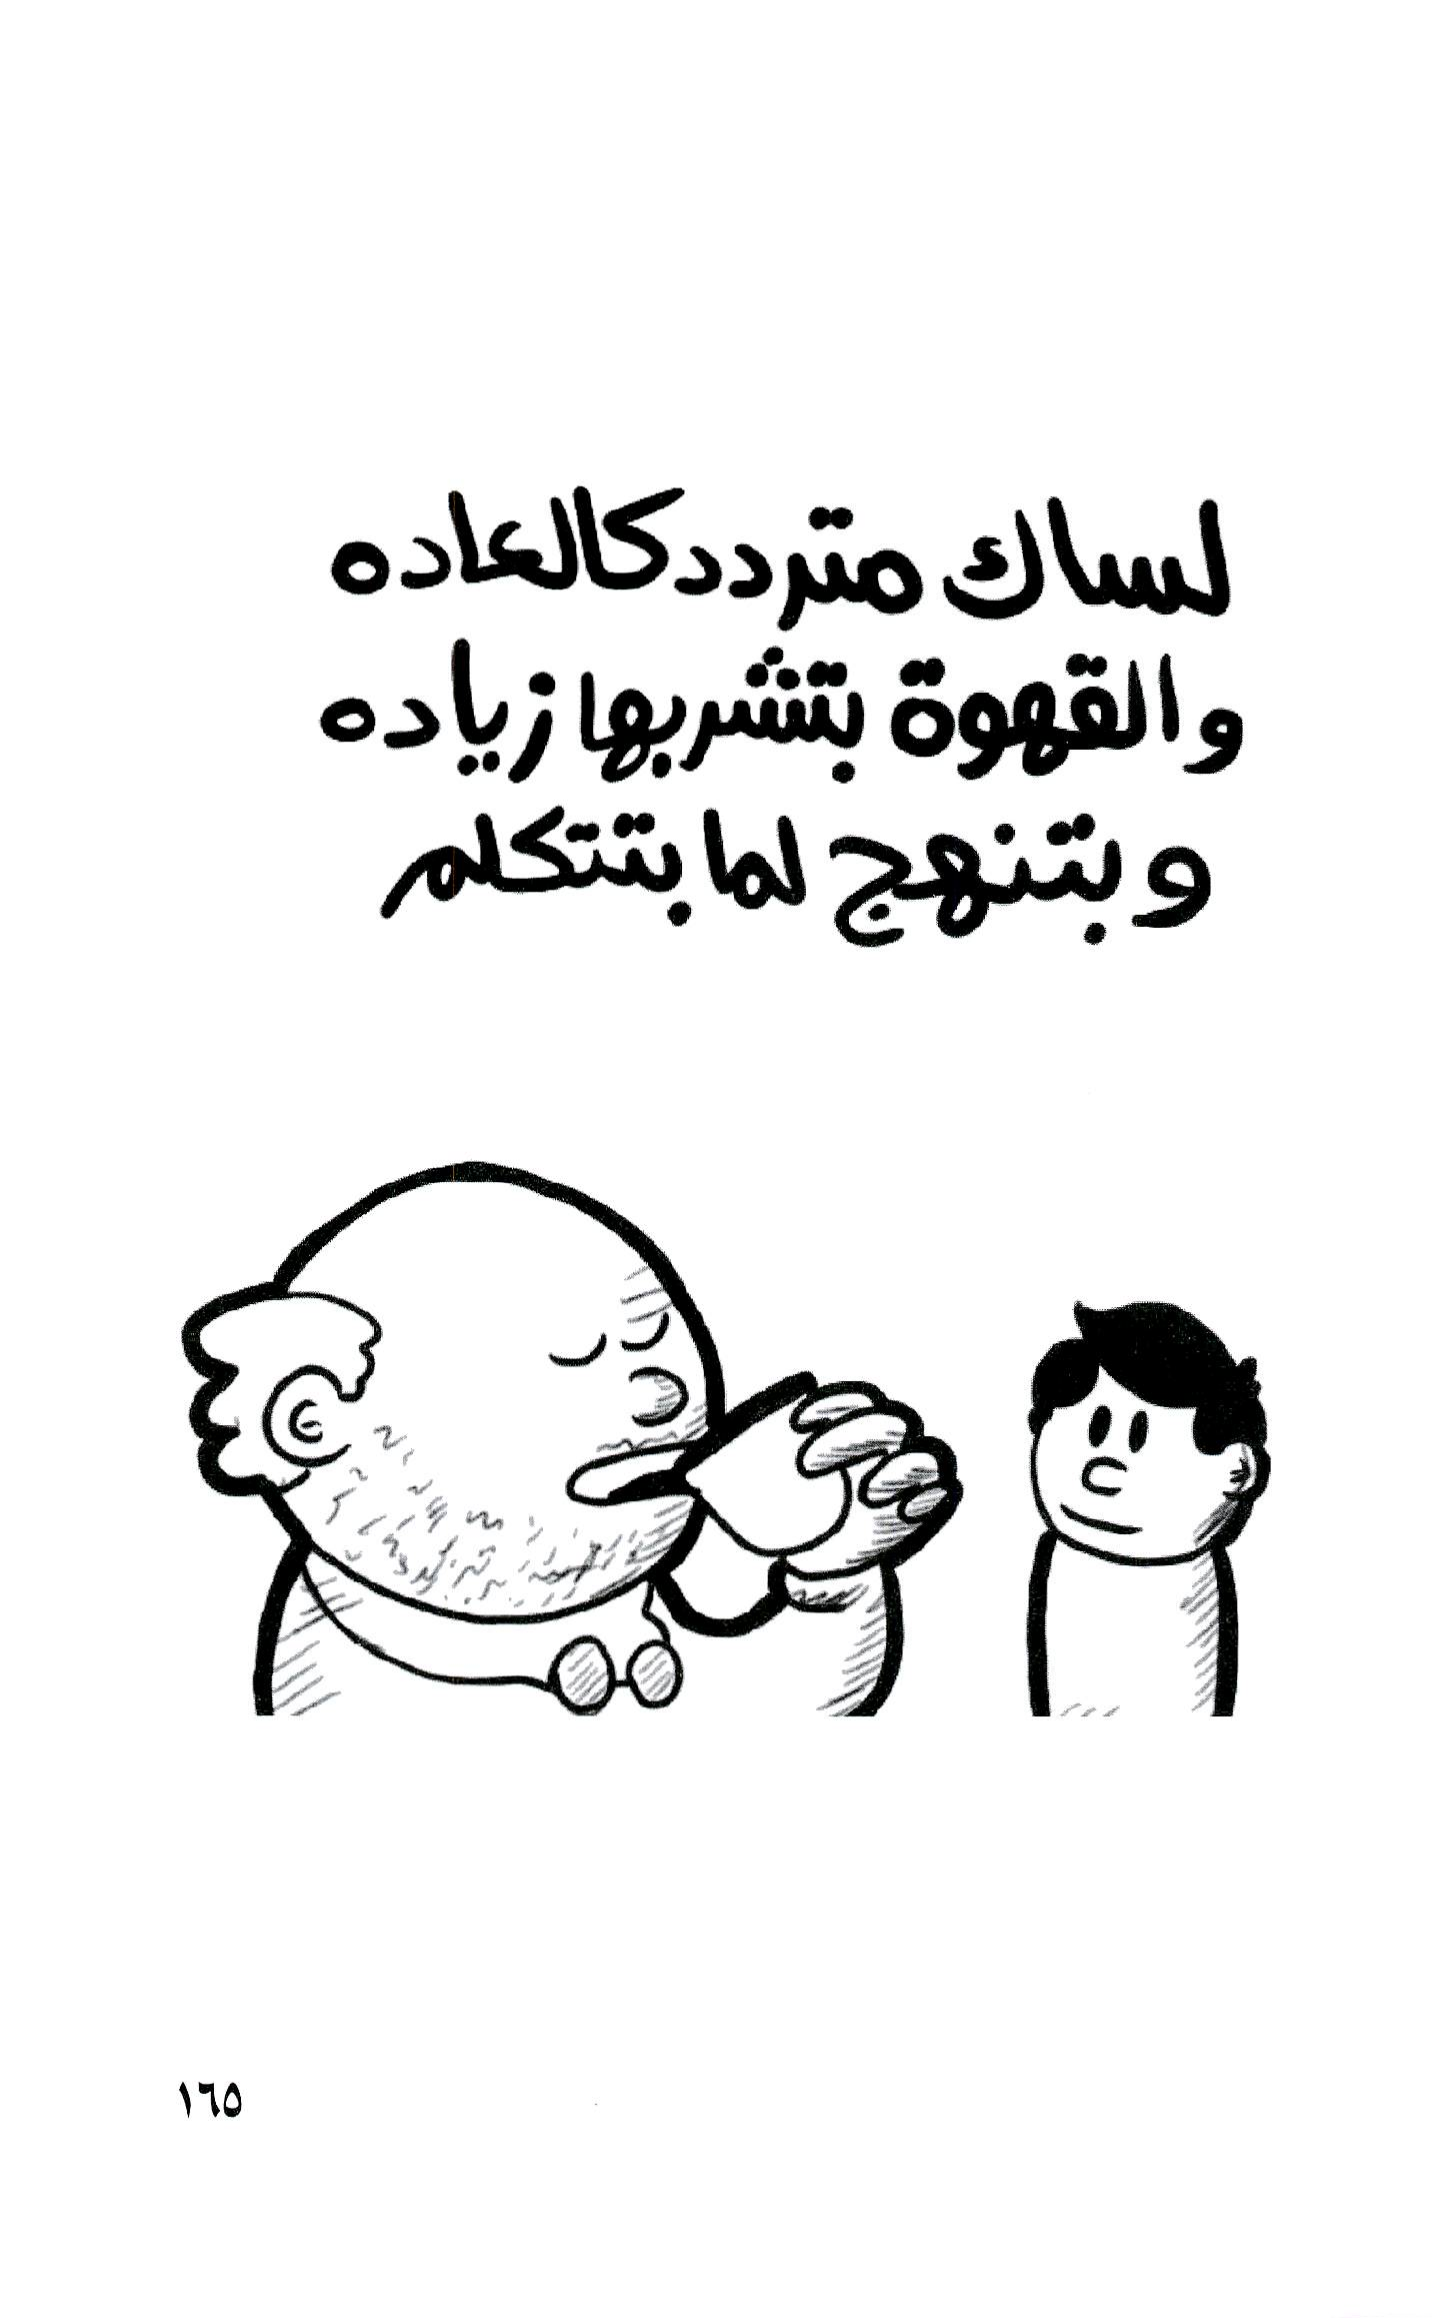 لساك متردد كالعاده
والقهوة بتشربها زياده
وبتنهج لما بتتكلم
١٦٥